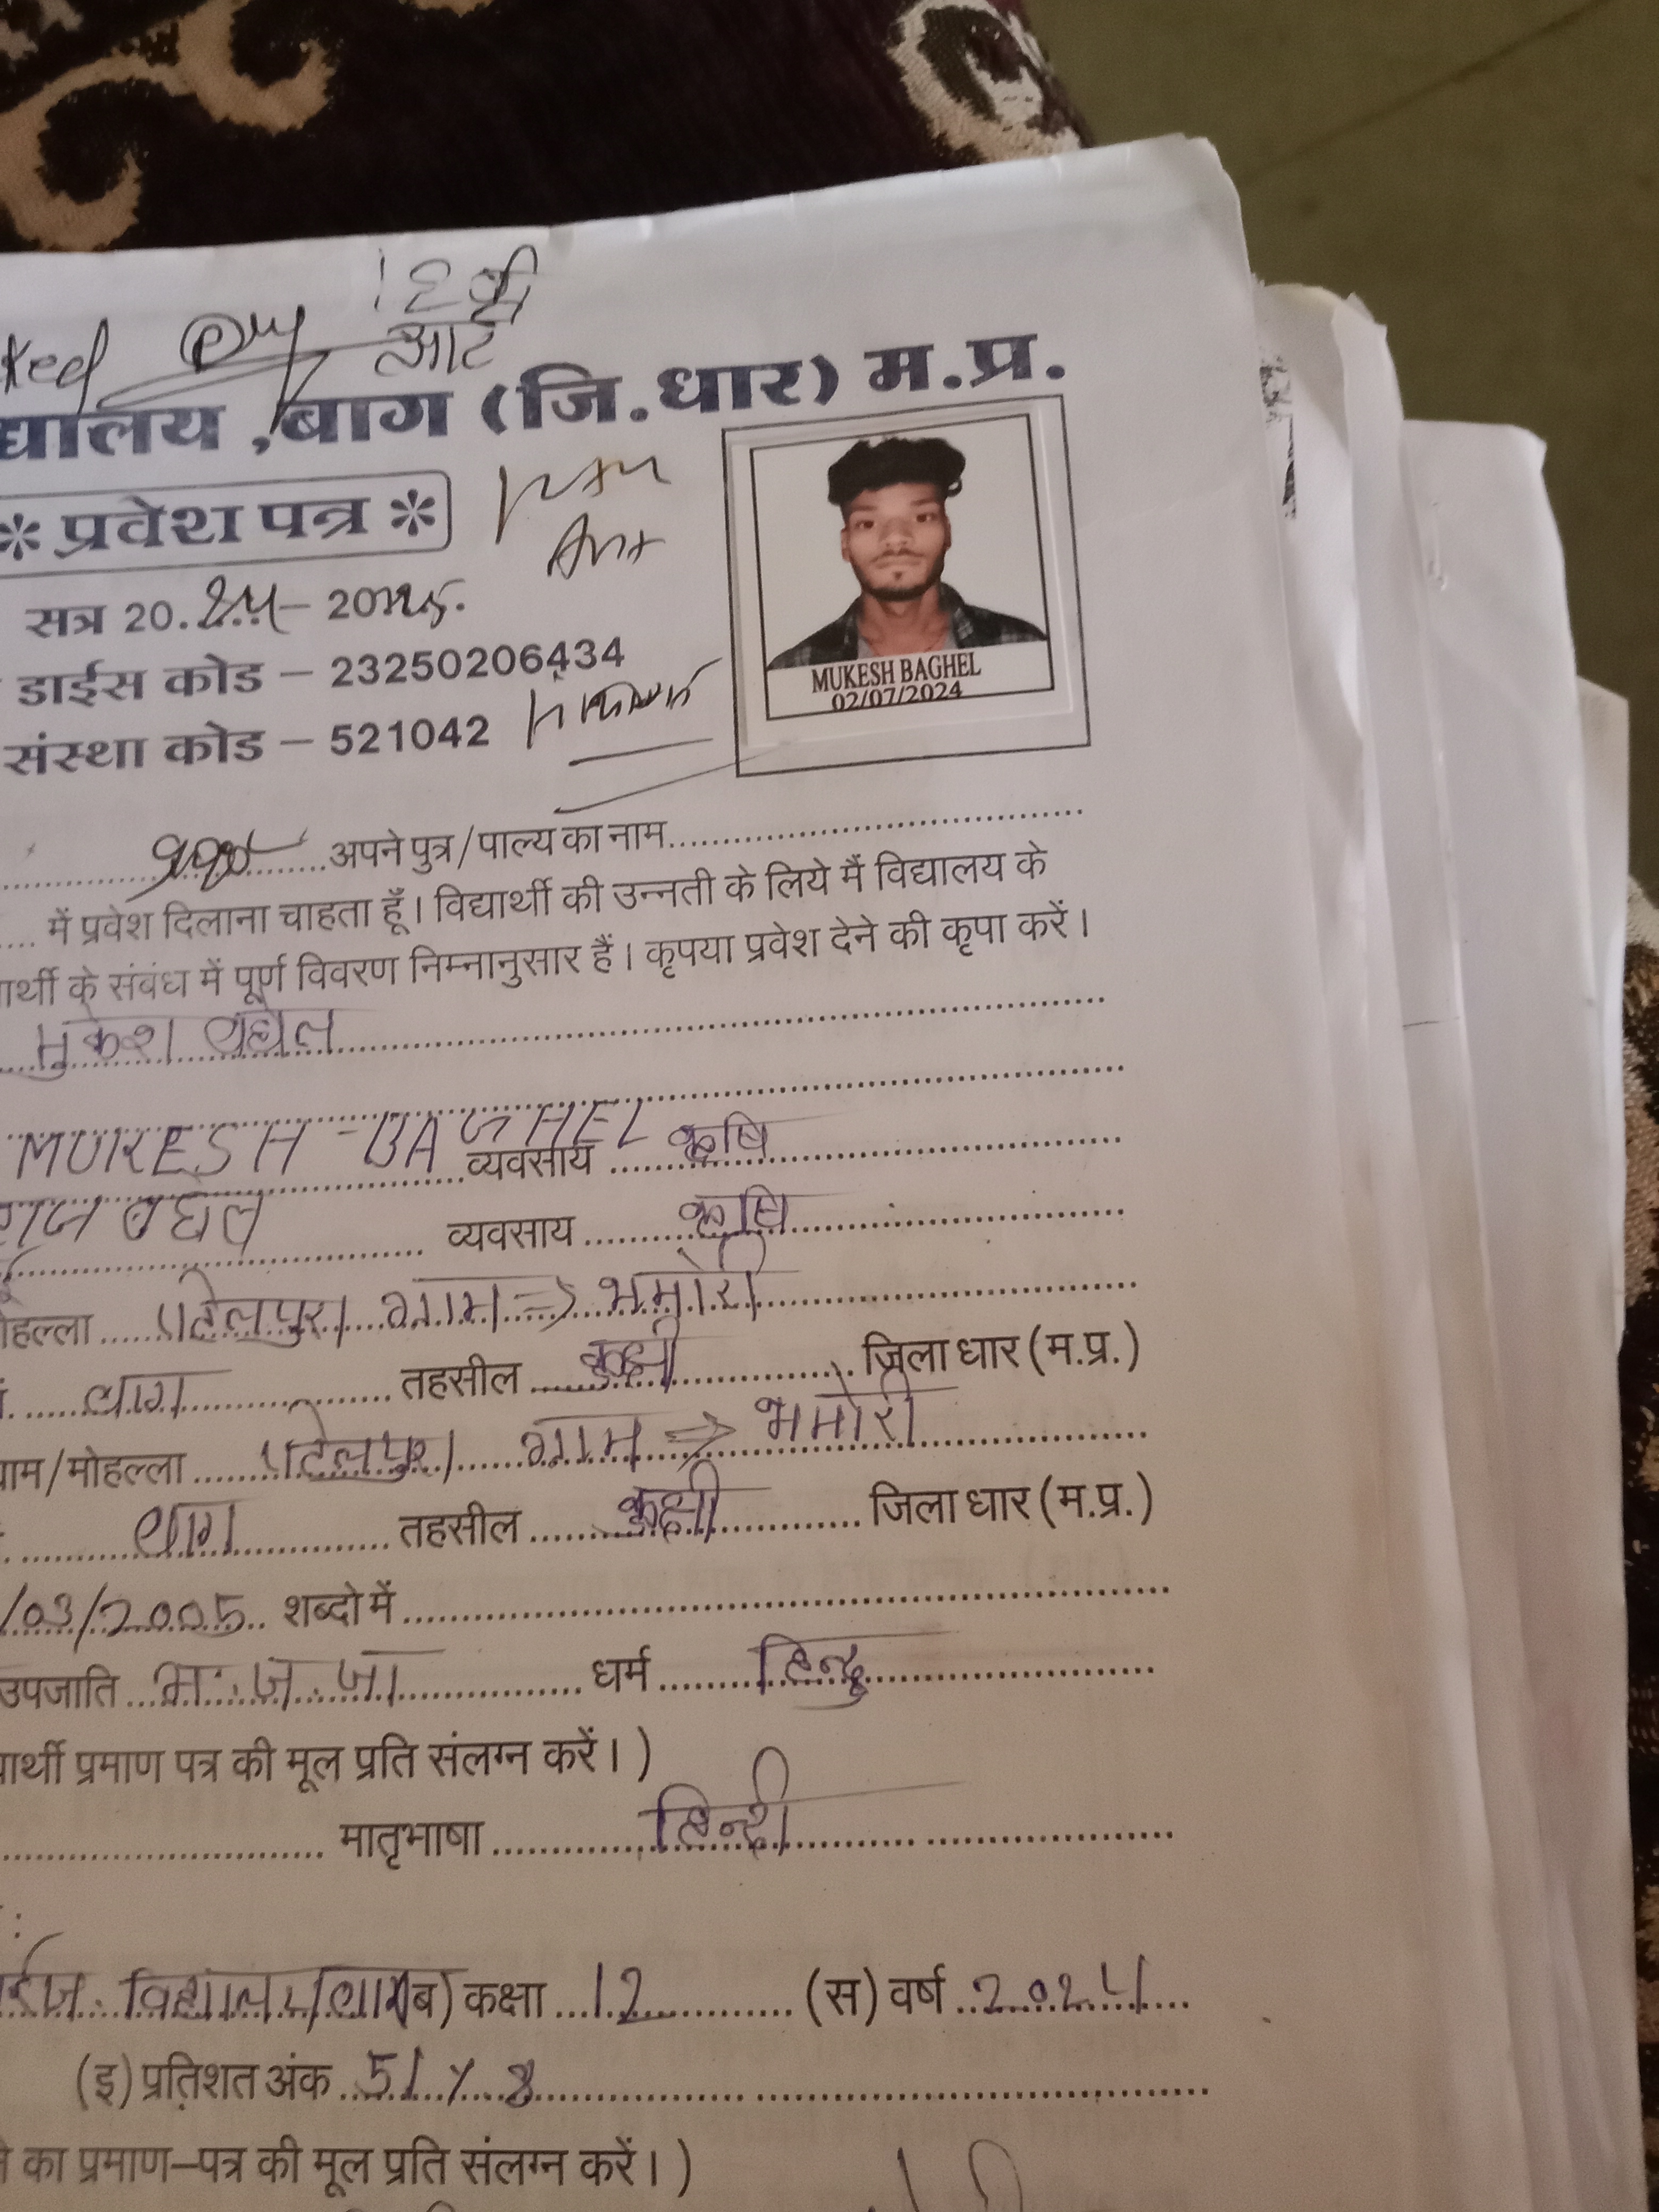 12वी
आर्ट
द्यालय ,बाग (जि.धार) म.प्र.
* प्रवेश पत्र *
सत्र 20.24 – 2025.
डाईस कोड – 23250206434
संस्था कोड – 521042
MUKESH BAGHEL
02/07/2024
अपने पुत्र/पाल्य का नाम
में प्रवेश दिलाना चाहता हूँ। विद्यार्थी की उन्नती के लिये मैं विद्यालय के
ार्थी के संबंध में पूर्ण विवरण निम्नानुसार हैं। कृपया प्रवेश देने की कृपा करें।
मुकेश बघेल
MUKESH BAGHEL
व्यवसाय कृषि
बघेल व्यवसाय कृषि
ोहल्ला पटेलपुरा ग्राम ⇒ भमोरी
बाग तहसील कुक्षी जिला धार (म.प्र.)
ग्राम/मोहल्ला पटेलपुरा ग्राम ⇒ भमोरी
बाग तहसील कुक्षी जिला धार (म.प्र.)
/03/2005 शब्दो में
उपजाति अ.ज.जा धर्म हिन्दु
ार्थी प्रमाण पत्र की मूल प्रति संलग्न करें। )
मातृभाषा हिन्दी
विद्यालय बाग (ब) कक्षा 12 (स) वर्ष 2024
(इ) प्रतिशत अंक 51
का प्रमाण–पत्र की मूल प्रति संलग्न करें। )